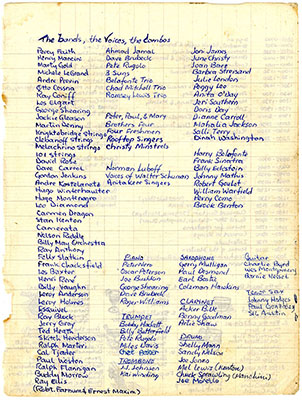 The Bands, the Voices, the Combos
Percy Faith
Henry Mancini
Marty Gold
Michele LeGrand
Andre Previn
Otto Cesana
Ray Coniff
Les Elgart
George Shearing
Jackie Gleason
Martin Denny
Knightsbridge Strings
Clebanoff Strings
Melachrino Strings
101 strings
David Rose
Dave Carrol
Gordon Jenkins
Andre Kostelanetz
Hugo Winterhalter
Hugo Montenegro
Lou Diamond
Carmen Dragon
Stan Kenton
Camerata
Nelson Riddle
Billy May Orchestra
Ray Anthony
Felix Slatkin
Frank Chacksfield
Les Baxter
Henri René
Billy Vaughn
Leroy Anderson
Leroy Holmes
Esquivel
Ray Block
Jerry Gray
Ted Heath
Skitch Henderson
Ralph Marteri
Cal Tjader
Paul Weston
Ralph Flannigan
Buddy Morrow
Ray Ellis
(Robt. Farnum & Ernest Maxin)
Ahmad Jamal
Dave Brubeck
Pete Rugolo
3 Suns
Belafonte Trio
Chad Mitchell Trio
Ramsey Lewis Trio
Peter, Paul, & Mary
Brothers Four
Four Freshmen
Rooftop Singers
Christy Minstrels
Norman Luboff
Voices of Walter Schuman
Anita Kerr Singers
Joni James
June Christy
Joan Baez
Barbra Streisand
Julie London
Peggy Lee
Anita O'Day
Jeri Southern
Doris Day
Dianne Carroll
Mahalia Jackson
Salli Terry
Dinah Washington
Harry Belafonte
Frank Sinatra
Billy Eckstein
Johnny Mathis
Robert Goulet
William Warfield
Perry Como
Brook Benton
PIANO
Peter Nero
Joe Bushkin
George Shearing
Dave Brubeck
Roger Williams
TRUMPET
Bobby Hackett
Billy Butterfield
Pete Rugolo
Miles Davis
Chet Baker
TROMBONE
J.J. Johnson
Kai Winding
SAXOPHONE
Gerry Mulligan
Paul Desmond
Earl Bostic
Coleman Hawkins
CLARINET
Acker Bilk
Benny Goodman
Artie Shaw
DRUMS
Shelly Mann
Sandy Nelson
Jo Jones
Mel Lewis (Kenton)
Joe Morello
Guitar
Charlie Byrd
Wes Montgomery
Barney Kessel
Johnny Hodges
Sil Austin